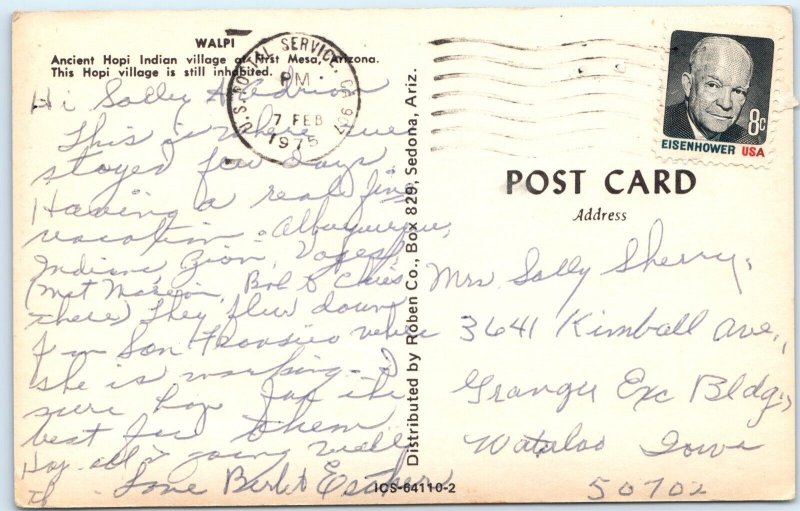 WALPI
Ancient Hopi Indian village at First Mesa, Arizona.
This Hopi village is still inhabited.
Hi Sally
This is where we
stayed few days.
Having a real fine
vacation - Albuquerque,
Indians, Zion, Vages,
(met Marion, Bob &
there) They flew down
f'm San where
she is working - I
sure hope for the
best for them
Hop all is going well
Love Bert & Esther
U.S. POSTAL SERVICE, CA 927
PM
7 FEB
1975
8c
EISENHOWER USA
POST CARD
Address
Mrs Sally Sherry,
3641 Kimball Ave.,
Granger Exc Bldg.,
Waterloo Iowa
50702
Distributed by Roben Co., Box 829, Sedona, Ariz.
ICS-64110-2